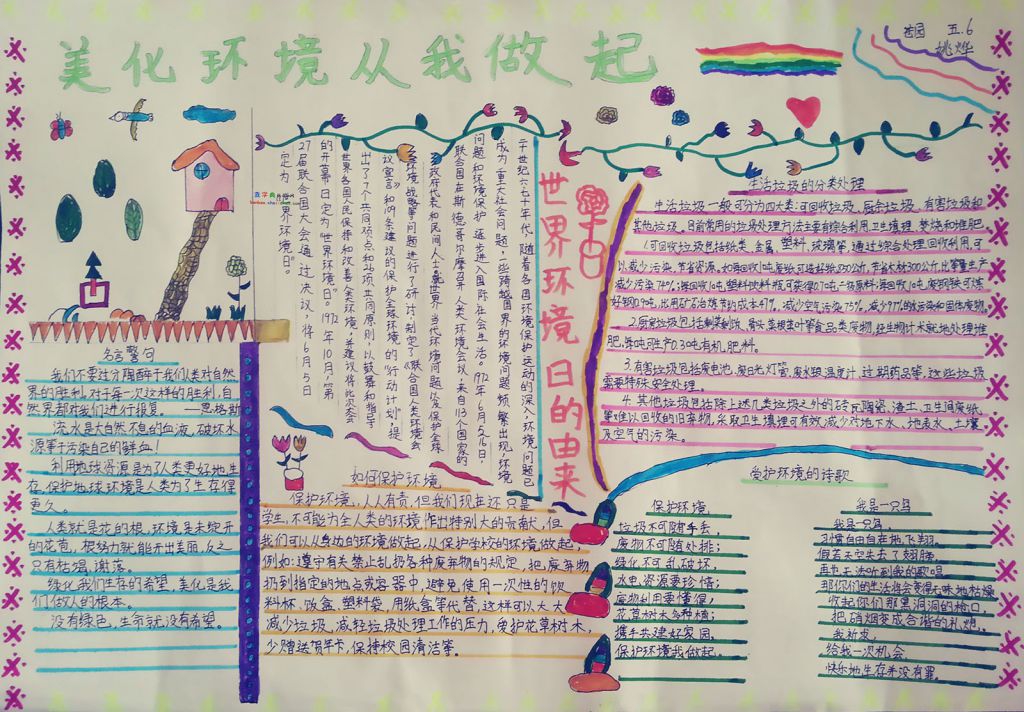 美化环境从我做起
五.6
姚烨
名言警句
我们不要过分陶醉于我们人类对自然
界的胜利,对于每一次这样的胜利,自
然界都对我们进行报复。——恩格斯
流水是大自然不息的血液,破坏水
源等于污染自己的鲜血!
利用地球资源是为了人类更好地生
存,保护地球环境是人类为了生存得
更久。
人类就是花的根,环境是未绽开
的花苞,根努力就能开出美丽,反之
只有枯竭、谢落。
绿化我们生存的希望,美化是我
们做人的根本。
没有绿色,生命就没有希望。
世界环境日的由来
二十世纪六七十年代,随着各国环境保护运动的深入,环境问题已
成为重大社会问题,一些跨越国界的环境问题频繁出现,环境
问题和环境保护逐步进入国际社会生活。1972年6月5—16日,
联合国在斯德哥尔摩召开人类环境会议,来自113个国家的
政府代表和民间人士就世界当代环境问题以及保护全球
环境战略等问题进行了研讨,制定了《联合国人类环境会
议宣言》和109条建议的保护全球环境的“行动计划”,提
出了7个共同观点和26项共同原则,以鼓舞和指导
世界各国人民保持和改善人类环境,并建议将此次大会
的开幕日定为“世界环境日”。1972年10月,第
27届联合国大会通过决议,将6月5日
定为“世界环境日”。
如何保护环境
保护环境,人人有责,但我们现在还只是
学生,不可能为全人类的环境作出特别大的贡献,但
我们可以从身边的环境做起,从保护学校的环境做起,
例如:遵守有关禁止乱扔各种废弃物的规定,把废弃物
扔到指定的地点或容器中,避免使用一次性的饮
料杯、饭盒、塑料袋,用纸盒等代替,这样可以大大
减少垃圾,减轻垃圾处理工作的压力,爱护花草树木,
少赠送贺年卡,保持校园清洁等。
生活垃圾的分类处理
生活垃圾一般可分为四大类:可回收垃圾、厨余垃圾、有害垃圾和
其他垃圾。目前常用的垃圾处理方法主要有综合利用、卫生填埋、焚烧和堆肥。
1.可回收垃圾包括纸类、金属、塑料、玻璃等,通过综合处理回收利用,可
以减少污染,节省资源。如每回收1吨废纸可造好纸850公斤,节省木材300公斤,比等量生产
减少污染74%;每回收1吨塑料饮料瓶可获得0.7吨二级原料;每回收1吨废钢铁可炼
好钢0.9吨,比用矿石冶炼节约成本47%,减少空气污染75%,减少97%的水污染和固体废物。
2.厨房垃圾包括剩菜剩饭、骨头、菜根菜叶等食品类废物,经生物技术就地处理堆
肥,每吨可生产0.3吨有机肥料。
3.有害垃圾包括废电池、废日光灯管、废水银温度计、过期药品等,这些垃圾
需要特殊安全处理。
4.其他垃圾包括除上述几类垃圾之外的砖瓦陶瓷、渣土、卫生间废纸
等难以回收的旧弃物,采取卫生填埋可有效减少对地下水、地表水、土壤
及空气的污染。
爱护环境的诗歌
保护环境
垃圾不可随手丢,
废物不可随处排;
绿化不可乱破坏,
水电资源要珍惜;
废物利用要懂得,
花草树木多种植;
携手共建好家园,
保护环境我做起。
我是一只鸟
我是一只鸟,
习惯自由自在地飞翔。
假若天空失去了翅膀,
再也无法听到我的歌唱,
那你们的生活将会变得无味地枯燥
收起你们那黑洞洞的枪口
把硝烟变成合谐的礼炮。
我祈求,
给我一次机会
快乐地生存并没有罪。